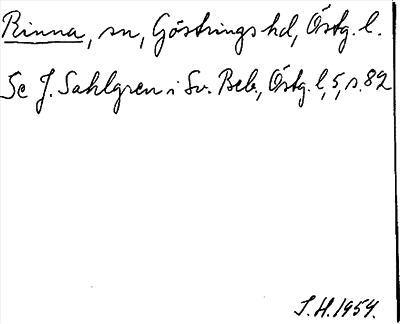 Rinna, sn, Göstrings hd, Östg. l.
Se J. Sahlgren i Sv. Beb., Östg. l, 5, s. 82
S.H. 1954.